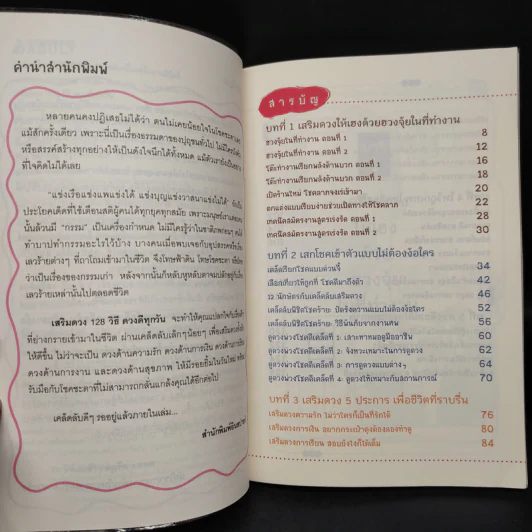 คำนำสำนักพิมพ์
หลายคนคงปฏิเสธไม่ได้ว่า ตนไม่เคยน้อยใจในโชคชะตา
แม้สักครั้งเดียว เพราะนี่เป็นเรื่องธรรมดาของปุถุชนทั่วไป ไม่มีใคร
หรือสรรค์สร้างทุกอย่างให้เป็นดังใจนึกได้ทั้งหมด แม้ตัวเรายังเป็น
ที่ใจคิดไม่ได้เลย
"แข่งเรือแข่งแพแข่งได้ แข่งบุญแข่งวาสนาแข่งไม่ได้"
ประโยคเด็ดที่ใช้เตือนสติผู้คนได้ทุกยุคทุกสมัย เพราะมนุษย์เรา
นั้นล้วนมี "กรรม" เป็นเครื่องกำหนด ไม่มีใครรู้ว่าในชาติภพก่อนๆ
ทำบาปทำกรรมอะไรไว้บ้าง บางคนเมื่อพบเจอกับอุปสรรคหรือ
เลวร้ายต่างๆ ที่ถาโถมเข้ามาในชีวิต จึงโทษฟ้าดิน โทษโชคชะตา
ว่าเป็นเรื่องของกรรมเก่า หลังจากนั้นก็
เลวร้ายเหล่านั้นไปตลอดชีวิต
เสริมดวง 128 วิธี ดวงดีทุกวัน จะทำให้คุณ
ที่ย่างกรายเข้ามาในชีวิต ผ่านเคล็ดลับเล็กๆ น้อยๆ เพื่อเสริม
ให้ดีขึ้น ไม่ว่าจะเป็น ดวงด้านความรัก ดวงด้านการเงิน
ดวงด้านการงาน และดวงด้านสุขภาพ ให้มีรอยยิ้มในวันใหม่
รับมือกับโชคชะตาที่ไม่สามารถกลั่นแกล้งคุณได้อีกต่อไป
เคล็ดลับดีๆ รออยู่แล้วภายในเล่ม...
สำนักพิมพ์
สารบัญ
บทที่ 1 เสริมดวงให้เฮงด้วยฮวงจุ้ยในที่ทำงาน
ฮวงจุ้ยในที่ทำงาน ตอนที่ 1 8
ฮวงจุ้ยในที่ทำงาน ตอนที่ 2 12
โต๊ะทำงานเรียกพลังด้านบวก ตอนที่ 1 16
โต๊ะทำงานเรียกพลังด้านบวก ตอนที่ 2 18
เปิดร้านใหม่ โชคลาภจงเข้ามา 20
ตกแต่งแบบเรียบง่ายช่วยเปิดทางให้โชคลาภ 22
เทคนิคสมัครงานสูตรเร่งรัด ตอนที่ 1 28
เทคนิคสมัครงานสูตรเร่งรัด ตอนที่ 2 30
บทที่ 2 เสกโชคเข้าตัวแบบไม่ต้องง้อใคร
เคล็ดเรียกโชคแบบด่วนจี๋ 34
เลือกเที่ยวให้ถูกที่ โชคดีมาถึงตัว 42
12 นักษัตรกับเคล็ดลับเสริมดวง 46
เคล็ดลับพิชิตโชคร้าย: ปัดรังควานแบบไม่ต้องง้อใคร 52
เคล็ดลับพิชิตโชคร้าย: วิธีพ้นภัยจากงานศพ 56
ดูดวงพ่วงโชคดีเคล็ดที่ 1: เสาะหาหมอดูมืออาชีพ 60
ดูดวงพ่วงโชคดีเคล็ดที่ 2: จังหวะเหมาะในการดูดวง 62
ดูดวงพ่วงโชคดีเคล็ดที่ 3: การดูดวงแบบต่างๆ 64
ดูดวงพ่วงโชคดีเคล็ดที่ 4: ดูดวงให้เหมาะกับสถานการณ์ 70
บทที่ 3 เสริมดวง 5 ประการ เพื่อชีวิตที่ราบรื่น
เสริมดวงความรัก ไม่ว่าใครก็เป็นที่รักได้ 76
เสริมดวงการเงิน อยากกระเป๋าตุงต้องลองทำดู 80
เสริมดวงการเรียน สอบยังไงก็ได้เต็ม 84